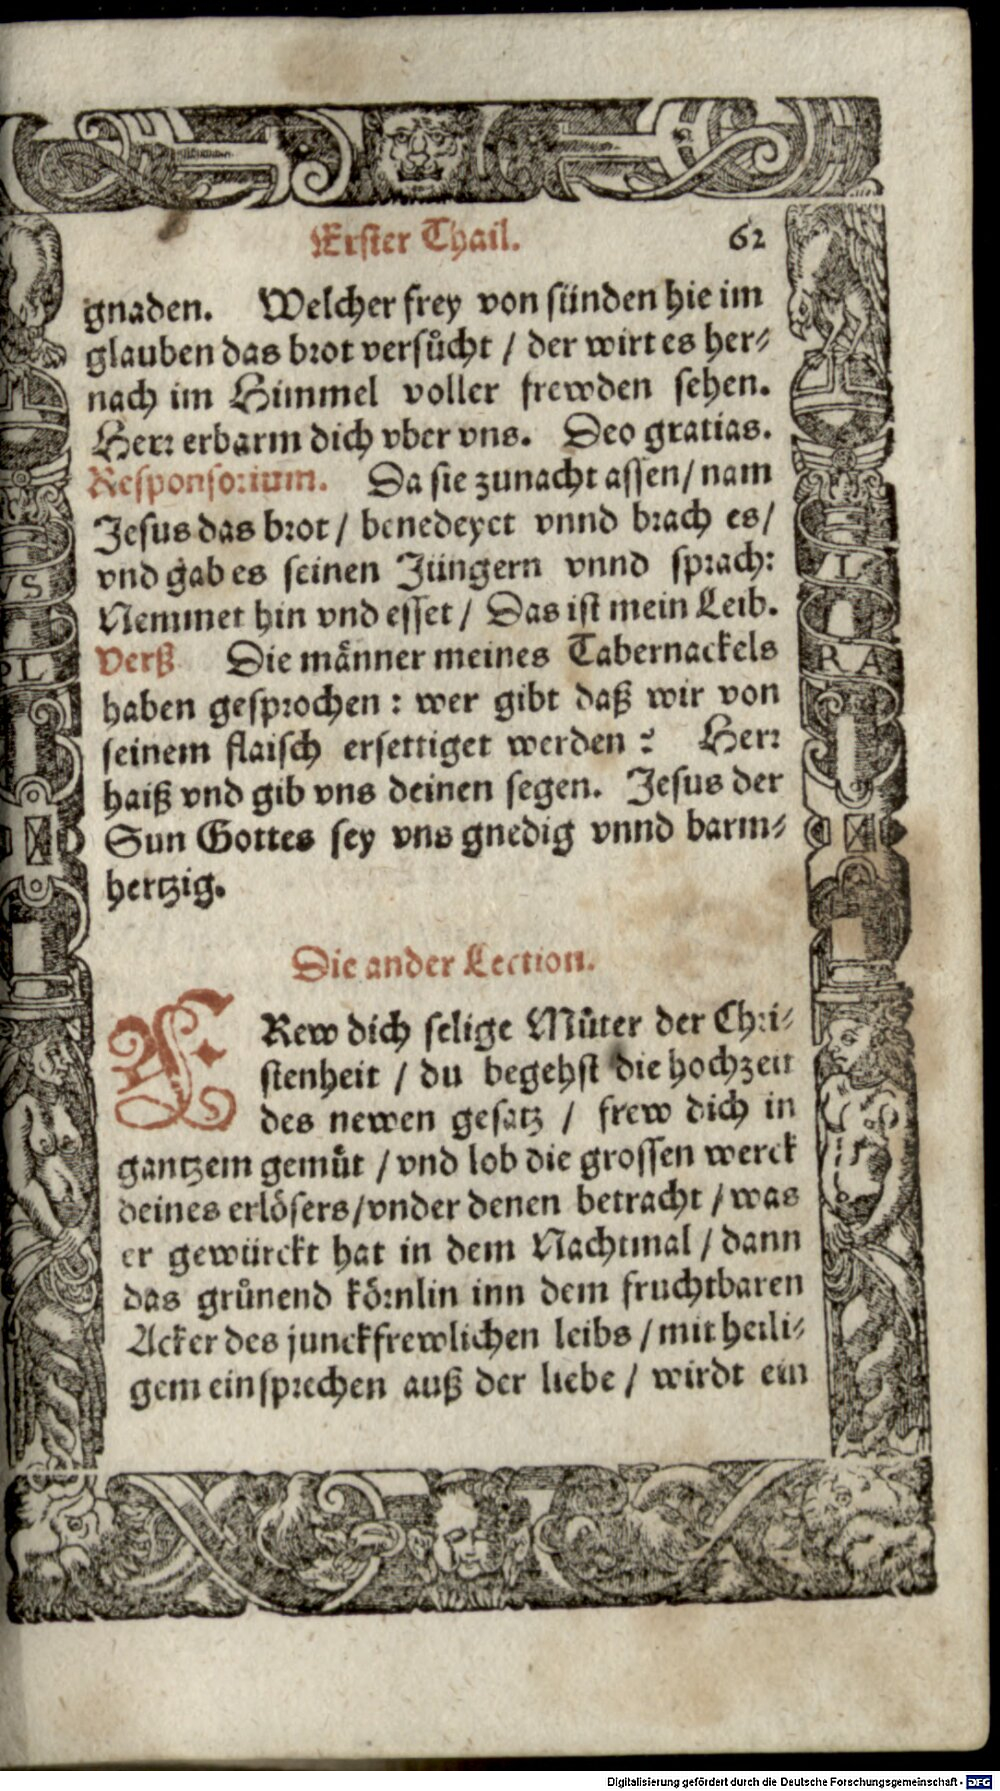 Erster Thail. 62
gnaden. Welcher frey von sünden hie im
glauben das brot versůcht / der wirt es her⸗
nach im Himmel voller frewden sehen.
Herr erbarm dich vber vns. Deo gratias.
Responsorium. Da sie zunacht assen / nam
Jesus das brot / benedeyet vnnd brach es /
vnd gab es seinen Jüngern vnnd sprach:
Nemmet hin vnd esset / Das ist mein Leib.
Verß Die männer meines Tabernackels
haben gesprochen: wer gibt daß wir von
seinem flaisch ersettiget werden? Herr
haiß vnd gib vns deinen segen. Jesus der
Sun Gottes sey vns gnedig vnnd barm⸗
hertzig.
Die ander Lection.
FRew dich selige Můter der Chri⸗
stenheit / du begehst die hochzeit
des newen gesatz / frew dich in
gantzem gemůt / vnd lob die grossen werck
deines erlösers / vnder denen betracht / was
er gewürckt hat in dem Nachtmal / dann
das grůnend körnlin inn dem fruchtbaren
Acker des junckfrewlichen leibs / mit heili⸗
gem einsprechen auß der liebe / wirdt ein
VS
PL
VL
RA
Digitalisierung gefördert durch die Deutsche Forschungsgemeinschaft - DFG